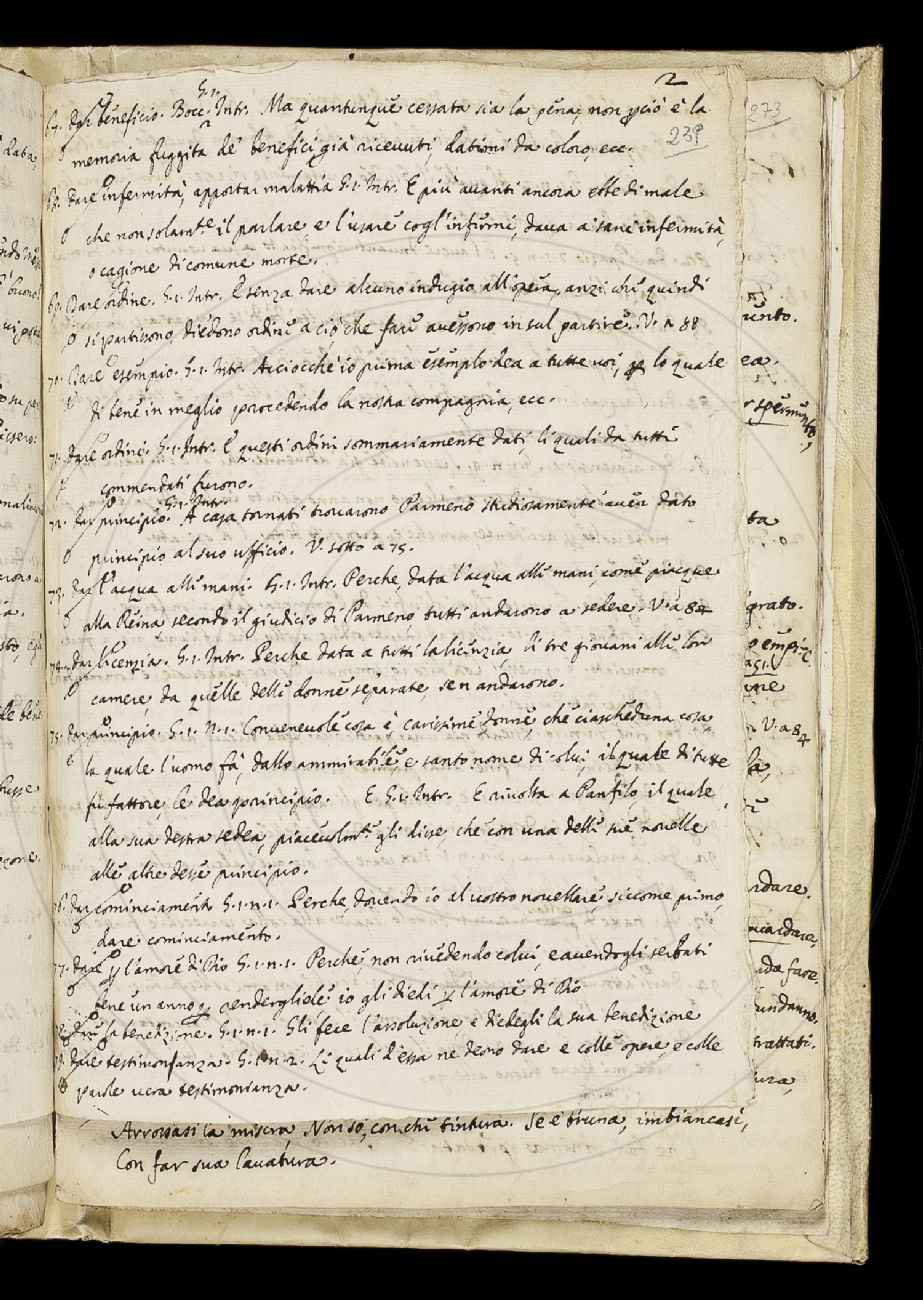 2
273
239
67. Dar beneficio. Bocc. G.1. Intr. Ma quantunque cessata sia la pena, non perciò è la
memoria fuggita de' benefici già ricevuti, datimi da coloro, ecc.
68. Dare infermità, apportar malattia G.1. Intr. E più avanti ancora ebbe di male
che non solam.te il parlare e l'usare cogl'infermi, dava a' sani infermità,
o cagione di comune morte.
69. Dare ordine. G.1. Intr. E senza dare alcuno indugio all'opera, anzi che quindi
si partissono, diedono ordine a ciò, che fare avessono in sul partire. V. a 88
70. Dare esempio. G.1. Intr. Acciocchè io prima esemplo dea a tutte voi, per lo quale
di bene in meglio procedendo la nostra compagnia, ecc.
71. Dare ordini. G.1. Intr. E questi ordini sommariamente dati, li quali da tutti
commendati furono.
72. Dar principio. G.1. Intr. A casa tornati trovarono Parmeno studiosamente aver dato
principio al suo ufficio. V. sotto a 75.
73. Dar l'acqua alle mani. G.1. Intr. Perche, data l'acqua alle mani, come piacque
alla Reina, secondo il giudicio di Parmeno, tutti andarono a sedere. V. a 84
74. Dar licenzia. G.1. Intr. Perche data a tutti la licenzia, li tre giovani alle lor
camere, da quelle delle donne separate, se n andarono.
75. Dar principio. G.1. N.1. Convenevole cosa è, carissime donne, che ciascheduna cosa,
la quale l'uomo fà, dallo ammirabile, e santo nome di colui, il quale di tutte
fu fattore, le dea principio. E G.1. Intr. E rivolta a Panfilo, il quale
alla sua destra sedea, piacevolm.te gli disse, che con una delle sue novelle
alle altre desse principio.
76. Dar cominciamento G.1. n.1. Perche, dovendo io al vostro novellare, siccome primo,
dare cominciamento.
77. Dare per l'amore di Dio G.1. n.1. Perche, non rivedendo colui, e avendogli serbati
bene un anno per rendergliele io gli diedi per l'amore di Dio
78. Dare la benedizione. G.1. n.1. Gli fece l'assoluzione e diedegli la sua benedizione
79. Dare testimonianza. G.1. n.2. Li quali d'essa ne deono dare e colle opere, e colle
parole vera testimonianza.
Arrossasi la misera, Non so, con che tintura. Se è bruna, imbiancasi,
Con far sua lavatura.